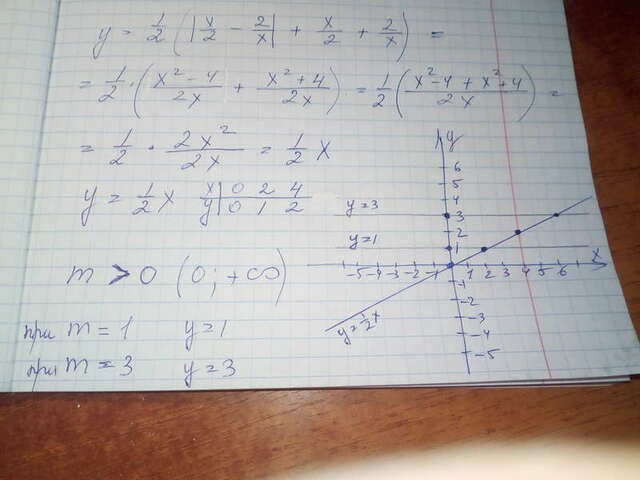 y = 1/2 (|x/2 - 2/x| + x/2 + 2/x) =
= 1/2 · (x²-4/2x + x²+4/2x) = 1/2 (x²-4+x²+4/2x) =
= 1/2 · 2x²/2x = 1/2 x
y = 1/2 x
x | 0 2 4
y | 0 1 2
m > 0 (0; +∞)
при m = 1 y = 1
при m = 3 y = 3
y
6
5
4
y=3 3
2
y=1 1
-5 -4 -3 -2 -1 0 1 2 3 4 5 6 x
-1
-2
-3
-4
-5
y=1/2x